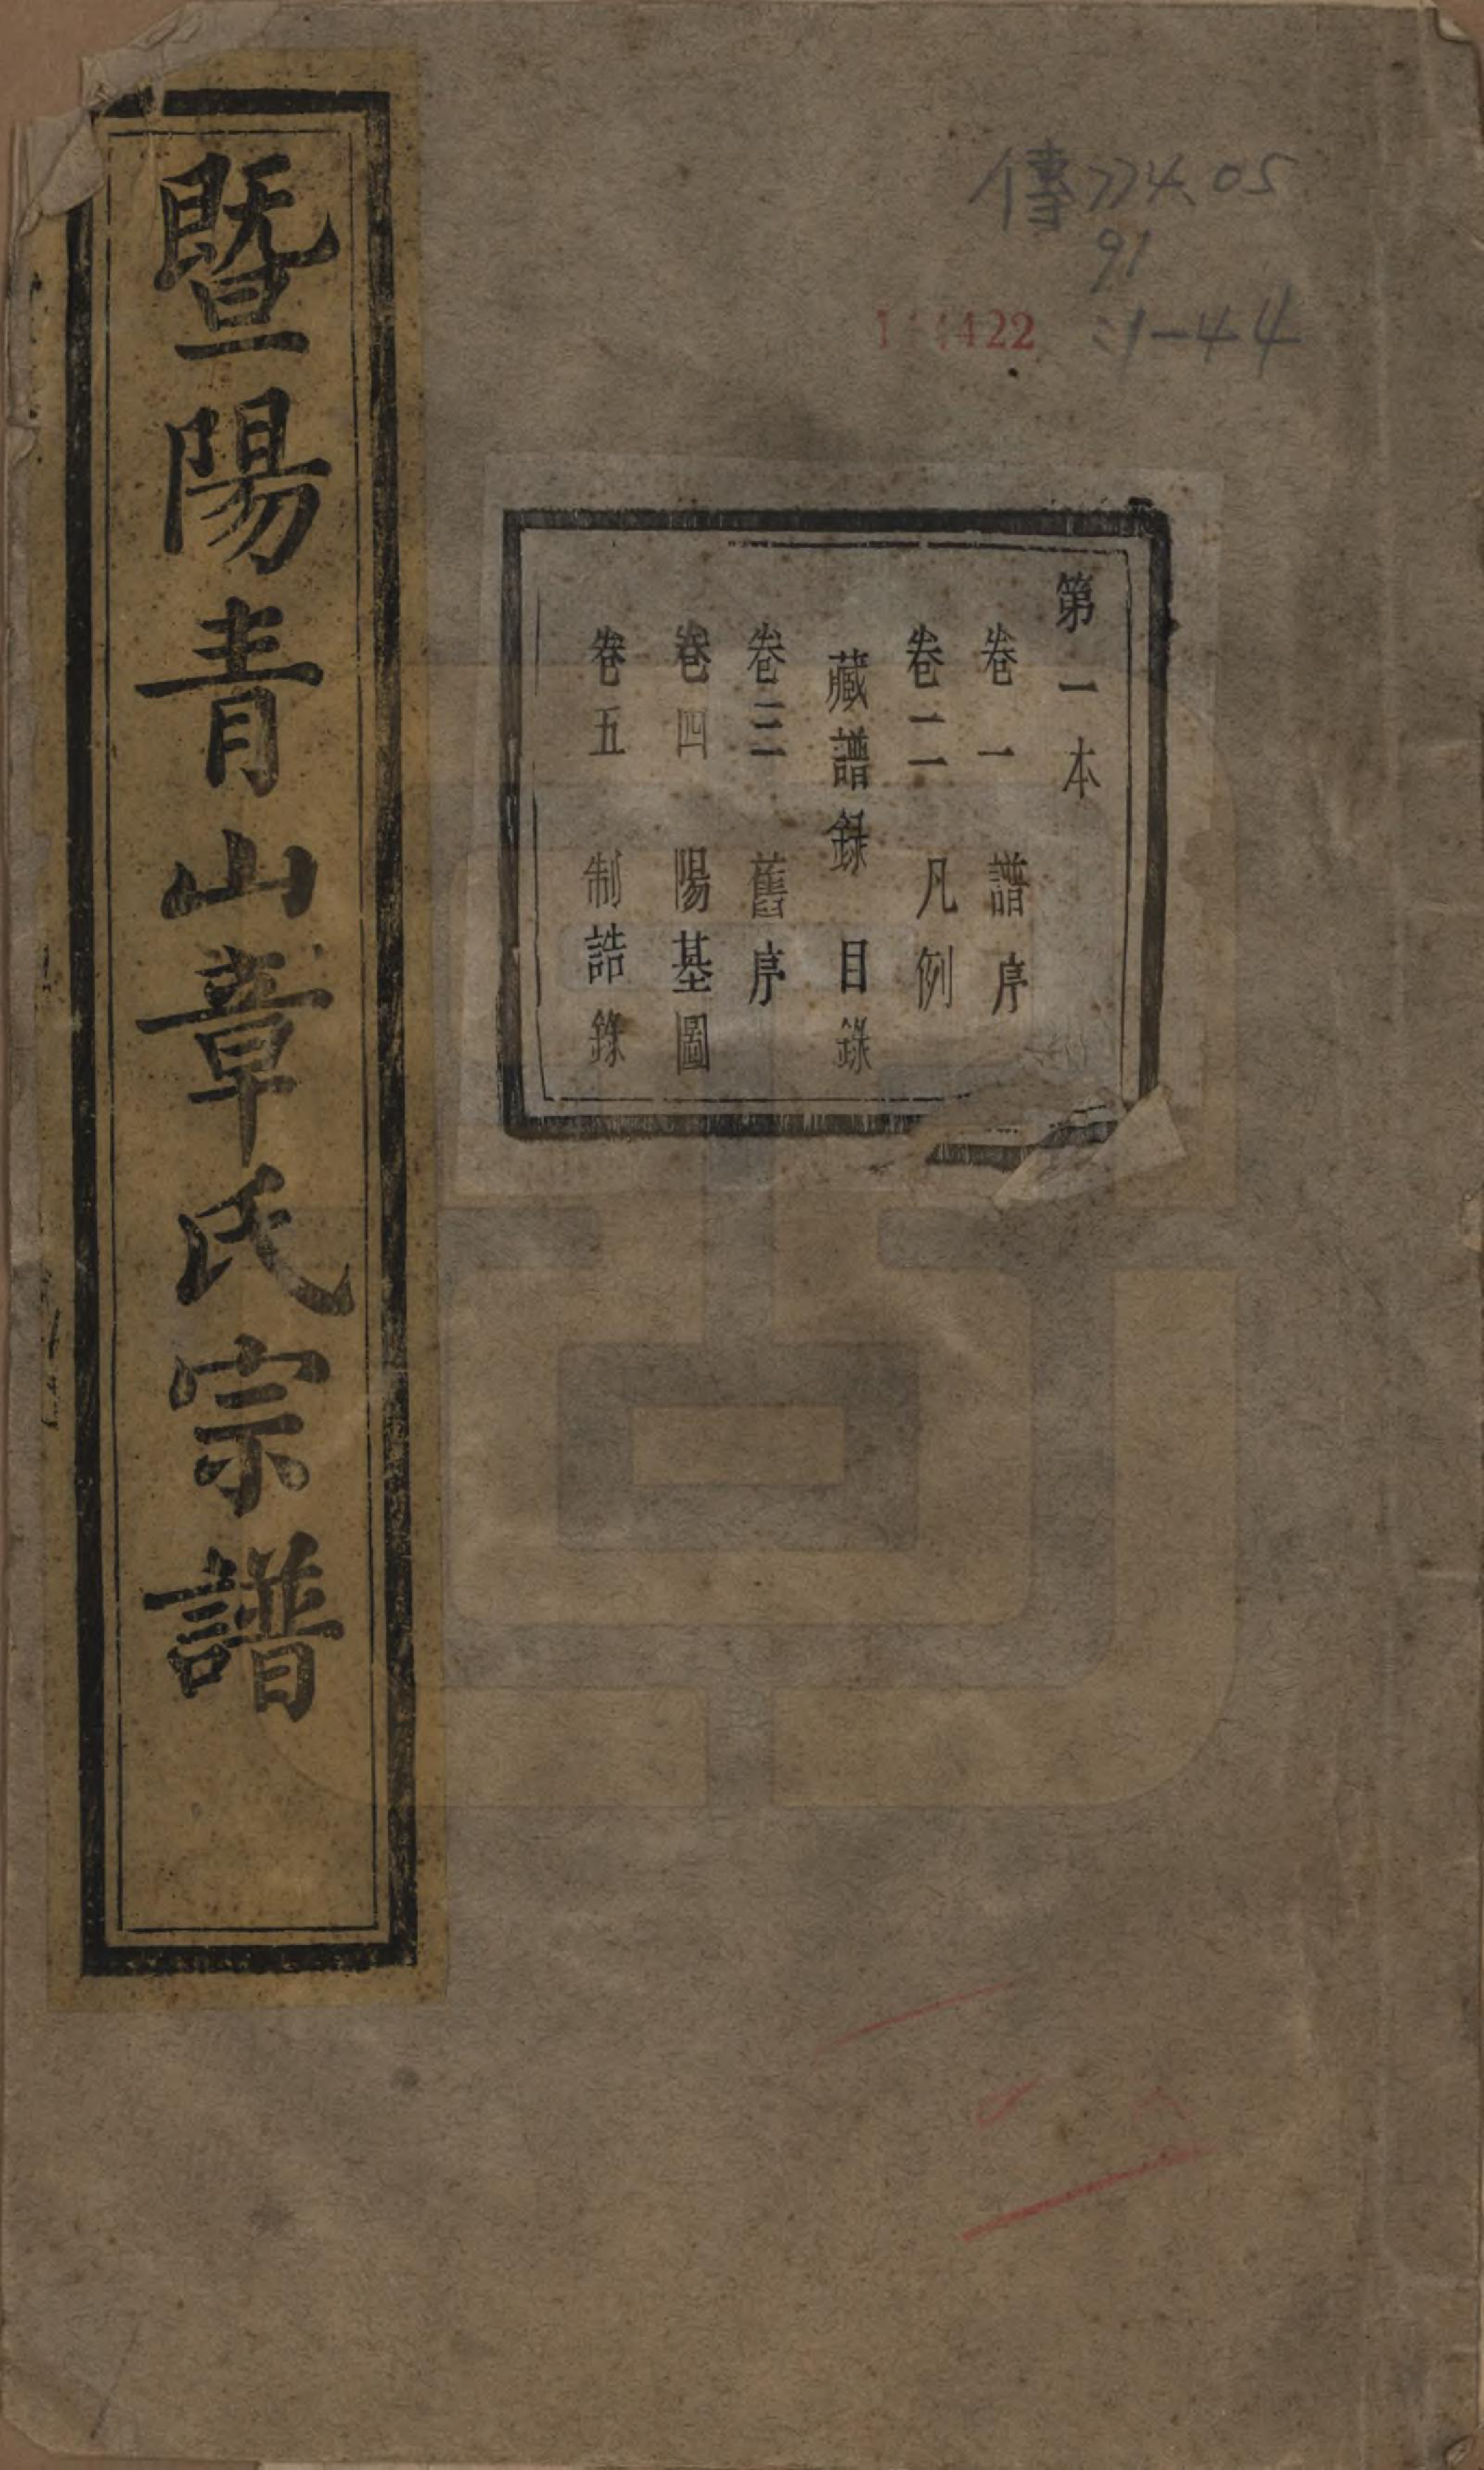 暨陽青山章氏宗譜
第一本
卷一 譜序
卷二 凡例
藏譜錄 目錄
卷三 舊序
卷四 陽基圖
卷五 制誥錄
傳774.05
91
:1-44